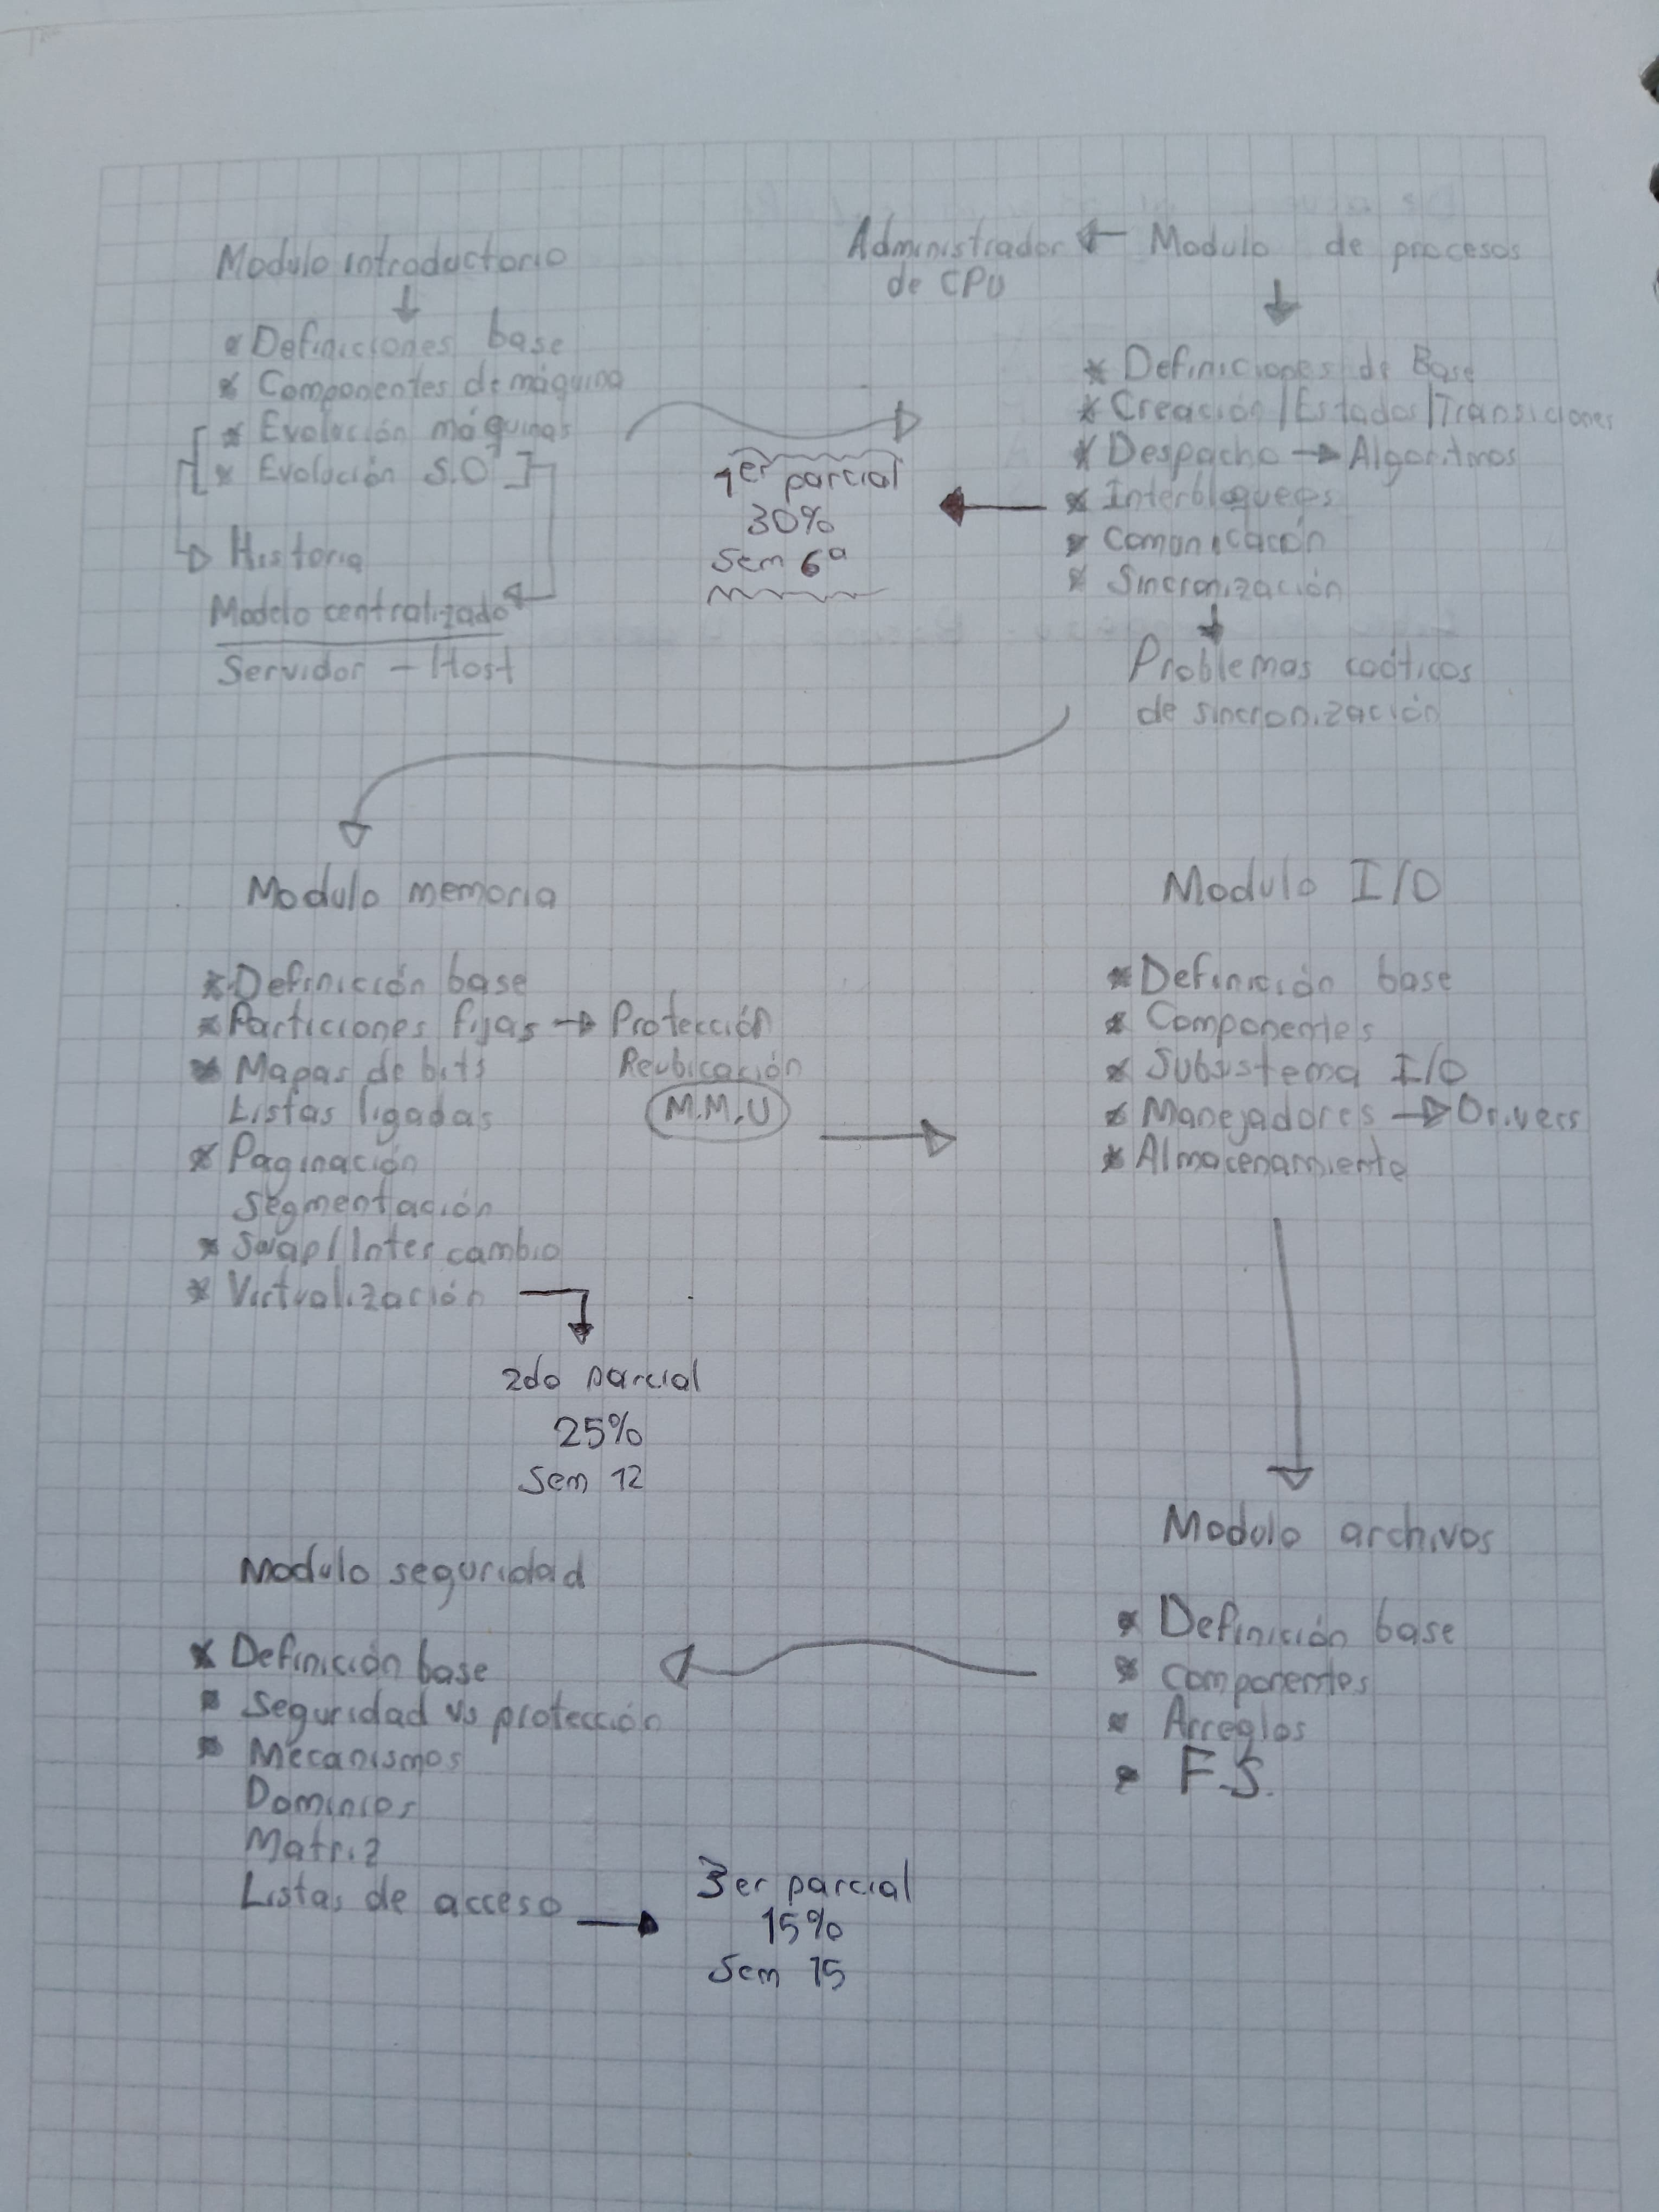 Modulo introductorio
• Definiciones base
* Componentes de máquina
* Evolución máquinas
* Evolución S.O
Historia
Modelo centralizado
Servidor - Host
Administrador ← Modulo de procesos
de CPU
* Definiciones de Base
* Creación/Estados/Transiciones
* Despacho → Algoritmos
* Interbloqueos
* Comunicación
* Sincronización
Problemas caóticos
de sincronización
1er parcial
30%
Sem 6ª
Modulo memoria
* Definicción base
* Particiones fijas → Protección
Reubicación
M.M.U
* Mapas de bits
Listas ligadas
* Paginación
Segmentación
* Swap/Intercambio
* Virtualización
2do parcial
25%
Sem 12
Modulo I/O
* Definición base
* Componentes
* Subsistema I/O
* Manejadores → Drivers
* Almacenamiento
Modulo archivos
* Definición base
* Componentes
* Arreglos
* F.S.
Modulo seguridad
* Definición base
* Seguridad vs protección
* Mecanismos
Dominios
Matriz
Listas de acceso
3er parcial
15%
Sem 15